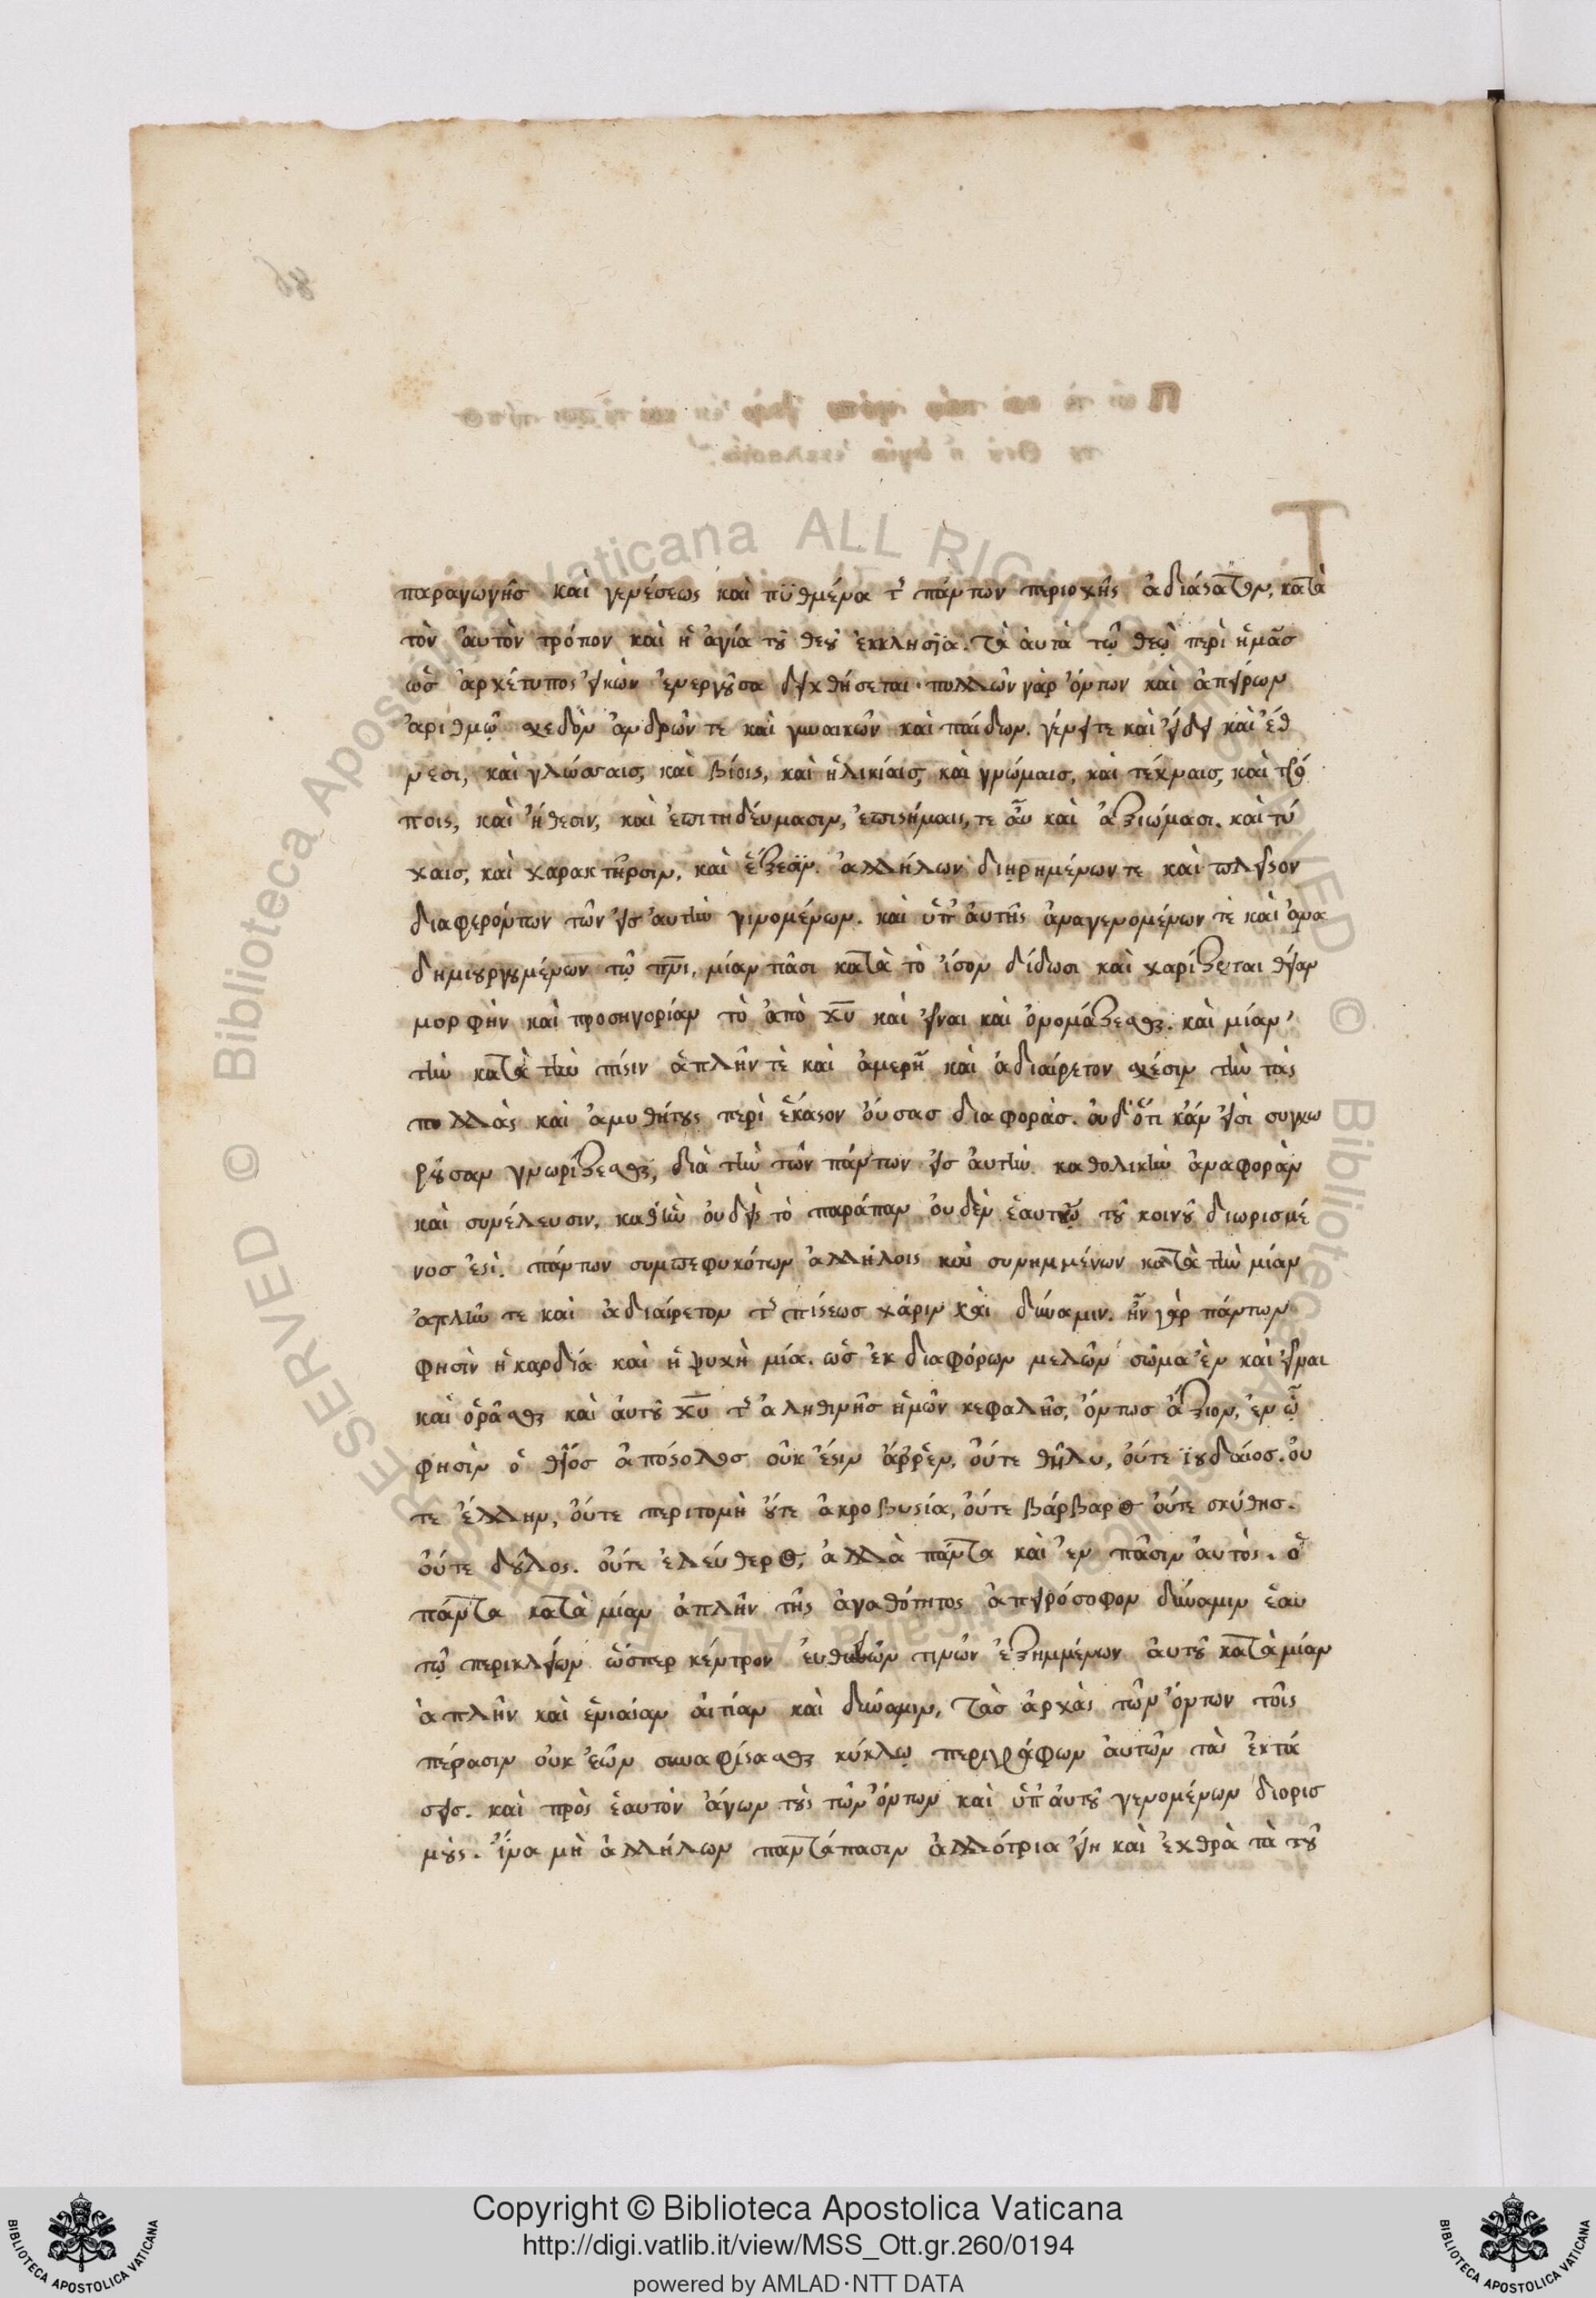 παραγωγῆς καὶ γενέσεως καὶ πυθμένα τ̂ πάντων περιοχῆς ἀδιάστατον, κατὰ
τὸν αὐτὸν τρόπον καὶ ἡ ἁγία τοῦ θεοῦ ἐκκλησία. τὰ αὐτὰ τῷ θεῷ περὶ ἡμᾶς
ὡς ἀρχέτυπος εἰκὼν ἐνεργοῦσα δειχθήσεται· πολλῶν γὰρ ὄντων καὶ ἀπείρων
ἀριθμῷ σχεδὸν ἀνδρῶν τε καὶ γυναικῶν καὶ παίδων. γένει τε καὶ εἴδει καὶ ἔθ
νεσι, καὶ γλώσσαις, καὶ βίοις, καὶ ἡλικίαις, καὶ γνώμαις, καὶ τέχναις, καὶ τρό
ποις, καὶ ἤθεσιν, καὶ ἐπιτηδεύμασιν, ἐπιστήμαις, τε αὖ καὶ ἀξιώμασι. καὶ τύ
χαις, καὶ χαρακτῆρσιν, καὶ ἕξεσιν. ἀλλήλων διῃρημένων τε καὶ πλεῖστον
διαφερόντων τῶν εἰς αὐτὴν γινομένων. καὶ ὑπ' αὐτῆς ἀναγενομένων τὲ καὶ ἀνα
δημιουργουμένων τῷ πνι, μίαν πᾶσι κατὰ τὸ ἴσον δίδωσι καὶ χαρίζεται θείαν
μορφὴν καὶ προσηγορίαν τὸ ἀπὸ χυ καὶ εἶναι καὶ ὀνομάζεσθαι. καὶ μίαν
τὴν κατὰ τὴν πίστιν ἁπλῆν τὲ καὶ ἀμερῆ καὶ ἀδιαίρετον σχέσιν τὴν τὰς
πολλὰς καὶ ἀμυθήτους περὶ ἕκαστον οὔσας διαφορὰς. οὐδ' ὅτι κἄν εἰσὶ συγχω
ροῦσαν γνωρίζεσθαι, διὰ τὴν τῶν πάντων εἰς αὐτὴν καθολικὴν ἀναφορὰν
καὶ συνέλευσιν, καθ' ἣν οὐδεὶς τὸ παράπαν οὐδὲν ἑαυτῷ τοῦ κοινοῦ διωρισμέ
νος ἐστὶ. πάντων συμπεφυκότων ἀλλήλοις καὶ συνημμένων κατὰ τὴν μίαν
ἁπλῆν τε καὶ ἀδιαίρετον τ̂ πίστεως χάριν καὶ δύναμιν. ἦν γὰρ πάντων
φησὶν ἡ καρδία καὶ ἡ ψυχὴ μία. ὡς ἐκ διαφόρων μελῶν σῶμα ἓν καὶ εἶναι
καὶ ὁρᾶσθαι καὶ αὐτοῦ χυ τ̂ ἀληθινῆς ἡμῶν κεφαλῆς, ὄντως ἄξιον, ἐν ᾧ
φησὶν ὁ θεῖος ἀπόστολος οὐκ ἔστιν ἄρρεν, οὔτε θῆλυ, οὔτε ἰουδαῖος. οὔ
τε ἕλλην, οὔτε περιτομὴ οὔτε ἀκροβυστία, οὔτε βάρβαρος οὔτε σκύθης.
οὔτε δοῦλος. οὔτε ἐλεύθερος, ἀλλὰ πάντα καὶ ἐν πᾶσιν αὐτὸς. ὁ
πάντα κατὰ μίαν ἁπλῆν τῆς ἀγαθότητος ἀπειρόσοφον δύναμιν ἑαυ
τῷ περικλείων ὥσπερ κέντρον εὐθειῶν τινῶν ἐξημμένων αὐτοῦ κατὰ μίαν
ἁπλῆν καὶ ἑνιαίαν αἰτίαν καὶ δύναμιν, τὰς ἀρχὰς τῶν ὄντων τοῖς
πέρασιν οὐκ ἐῶν συναφίστασθαι κύκλῳ περιγράφων αὐτῶν τὰς ἐκτά
σεις. καὶ πρὸς ἑαυτὸν ἄγων τοὺς τῶν ὄντων καὶ ὑπ' αὐτοῦ γενομένων διορισ
μοὺς. ἵνα μὴ ἀλλήλων παντάπασιν ἀλλότρια εἴη καὶ ἐχθρὰ τὰ τοῦ
Copyright © Biblioteca Apostolica Vaticana
http://digi.vatlib.it/view/MSS_Ott.gr.260/0194
powered by AMLAD·NTT DATA